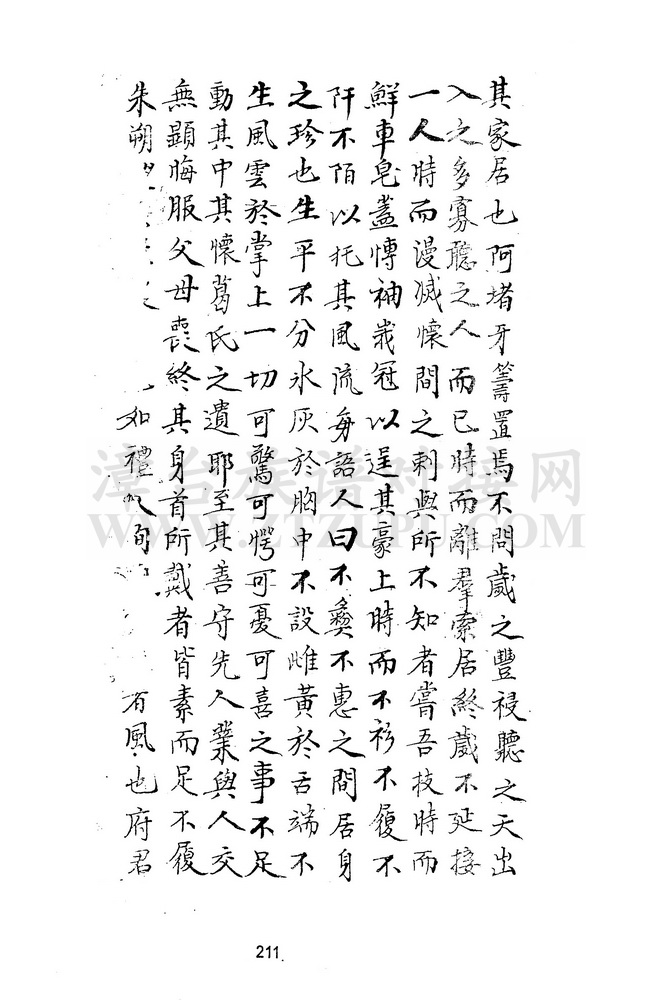 其家居也阿堵牙籌置焉不問歲之豐祲聽之天出
入之多寡聽之人而已時而離羣索居終歲不延接
一人時而漫滅懷間之刺與所不知者嘗吾技時而
鮮車皂蓋慱袖峩冠以逞其豪上時而不衫不履不
阡不陌以托其風流每語人曰不夷不惠之間居身
之珍也生平不分氷灰於胸中不設雌黃於舌端不
生風雲於掌上一切可驚可愕可憂可喜之事不足
動其中其懷葛氏之遺耶至其善守先人業與人交
無顯悔服父母喪終其身首所戴者皆素而足不履
朱朔 如禮 旬 有風也府君
漳台族谱对接网
WWW.ZTZUPU.COM
211